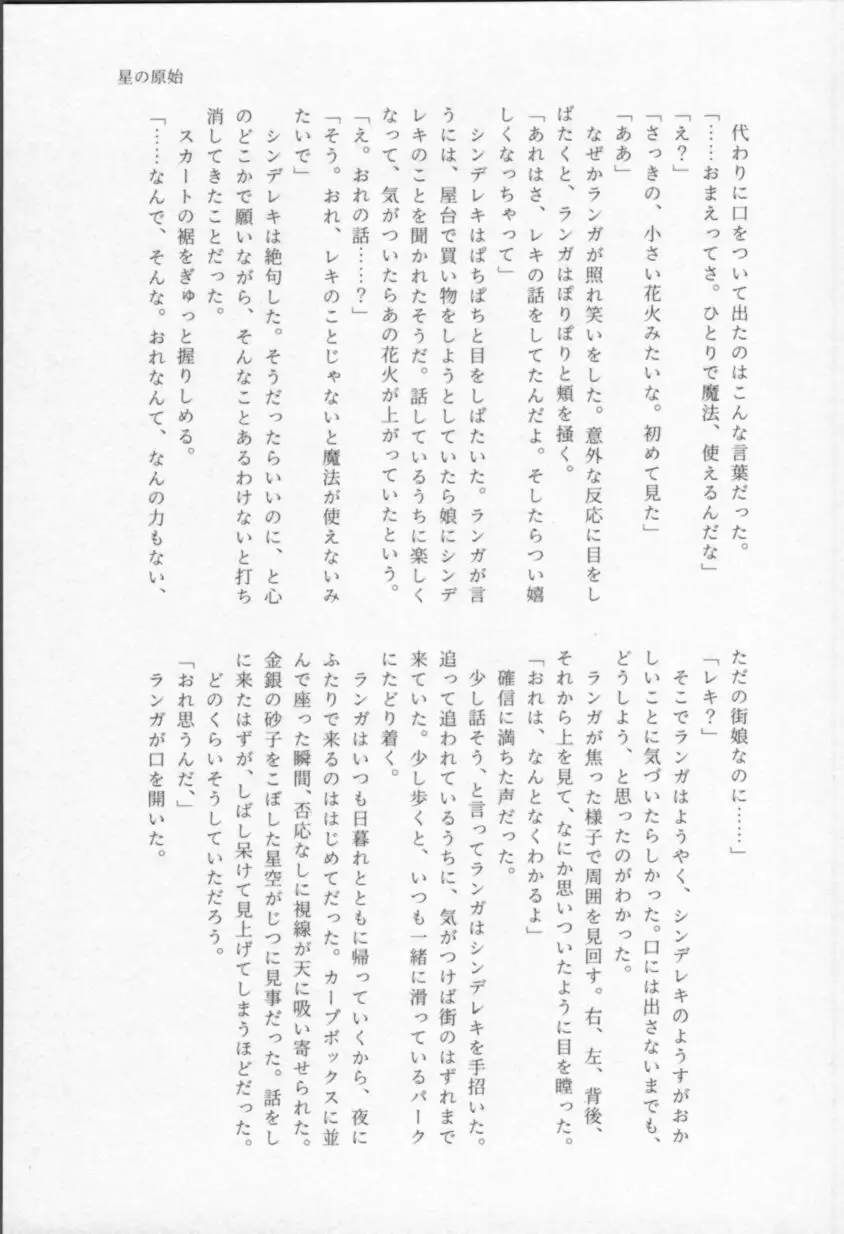 星の原始
代わりに口をついて出たのはこんな言葉だった。
「……おまえってさ。ひとりで魔法、使えるんだな」
「え?」
「さっきの、小さい花火みたいな。初めて見た」
「ああ」
なぜかランガが照れ笑いをした。意外な反応に目をし
ばたくと、ランガはぽりぽりと頬を掻く。
「あれはさ、レキの話をしてたんだよ。そしたらつい嬉
しくなっちゃって」
シンデレキはぱちぱちと目をしばたいた。ランガが言
うには、屋台で買い物をしようとしていたら娘にシンデ
レキのことを聞かれたそうだ。話しているうちに楽しく
なって、気がついたらあの花火が上がっていたという。
「え。おれの話……?」
「そう。おれ、レキのことじゃないと魔法が使えないみ
たいで」
シンデレキは絶句した。そうだったらいいのに、と心
のどこかで願いながら、そんなことあるわけないと打ち
消してきたことだった。
スカートの裾をぎゅっと握りしめる。
「……なんで、そんな。おれなんて、なんの力もない、
ただの街娘なのに……」
「レキ?」
そこでランガはようやく、シンデレキのようすがおか
しいことに気づいたらしかった。口には出さないまでも、
どうしよう、と思ったのがわかった。
ランガが焦った様子で周囲を見回す。右、左、背後、
それから上を見て、なにか思いついたように目を瞠った。
「おれは、なんとなくわかるよ」
確信に満ちた声だった。
少し話そう、と言ってランガはシンデレキを手招いた。
追って追われているうちに、気がつけば街のはずれまで
来ていた。少し歩くと、いつも一緒に滑っているパーク
にたどり着く。
ランガはいつも日暮れとともに帰っていくから、夜に
ふたりで来るのははじめてだった。カーブボックスに並
んで座った瞬間、否応なしに視線が天に吸い寄せられた。
金銀の砂子をこぼした星空がじつに見事だった。話をし
に来たはずが、しばし呆けて見上げてしまうほどだった。
どのくらいそうしていただろう。
「おれ思うんだ、」
ランガが口を開いた。